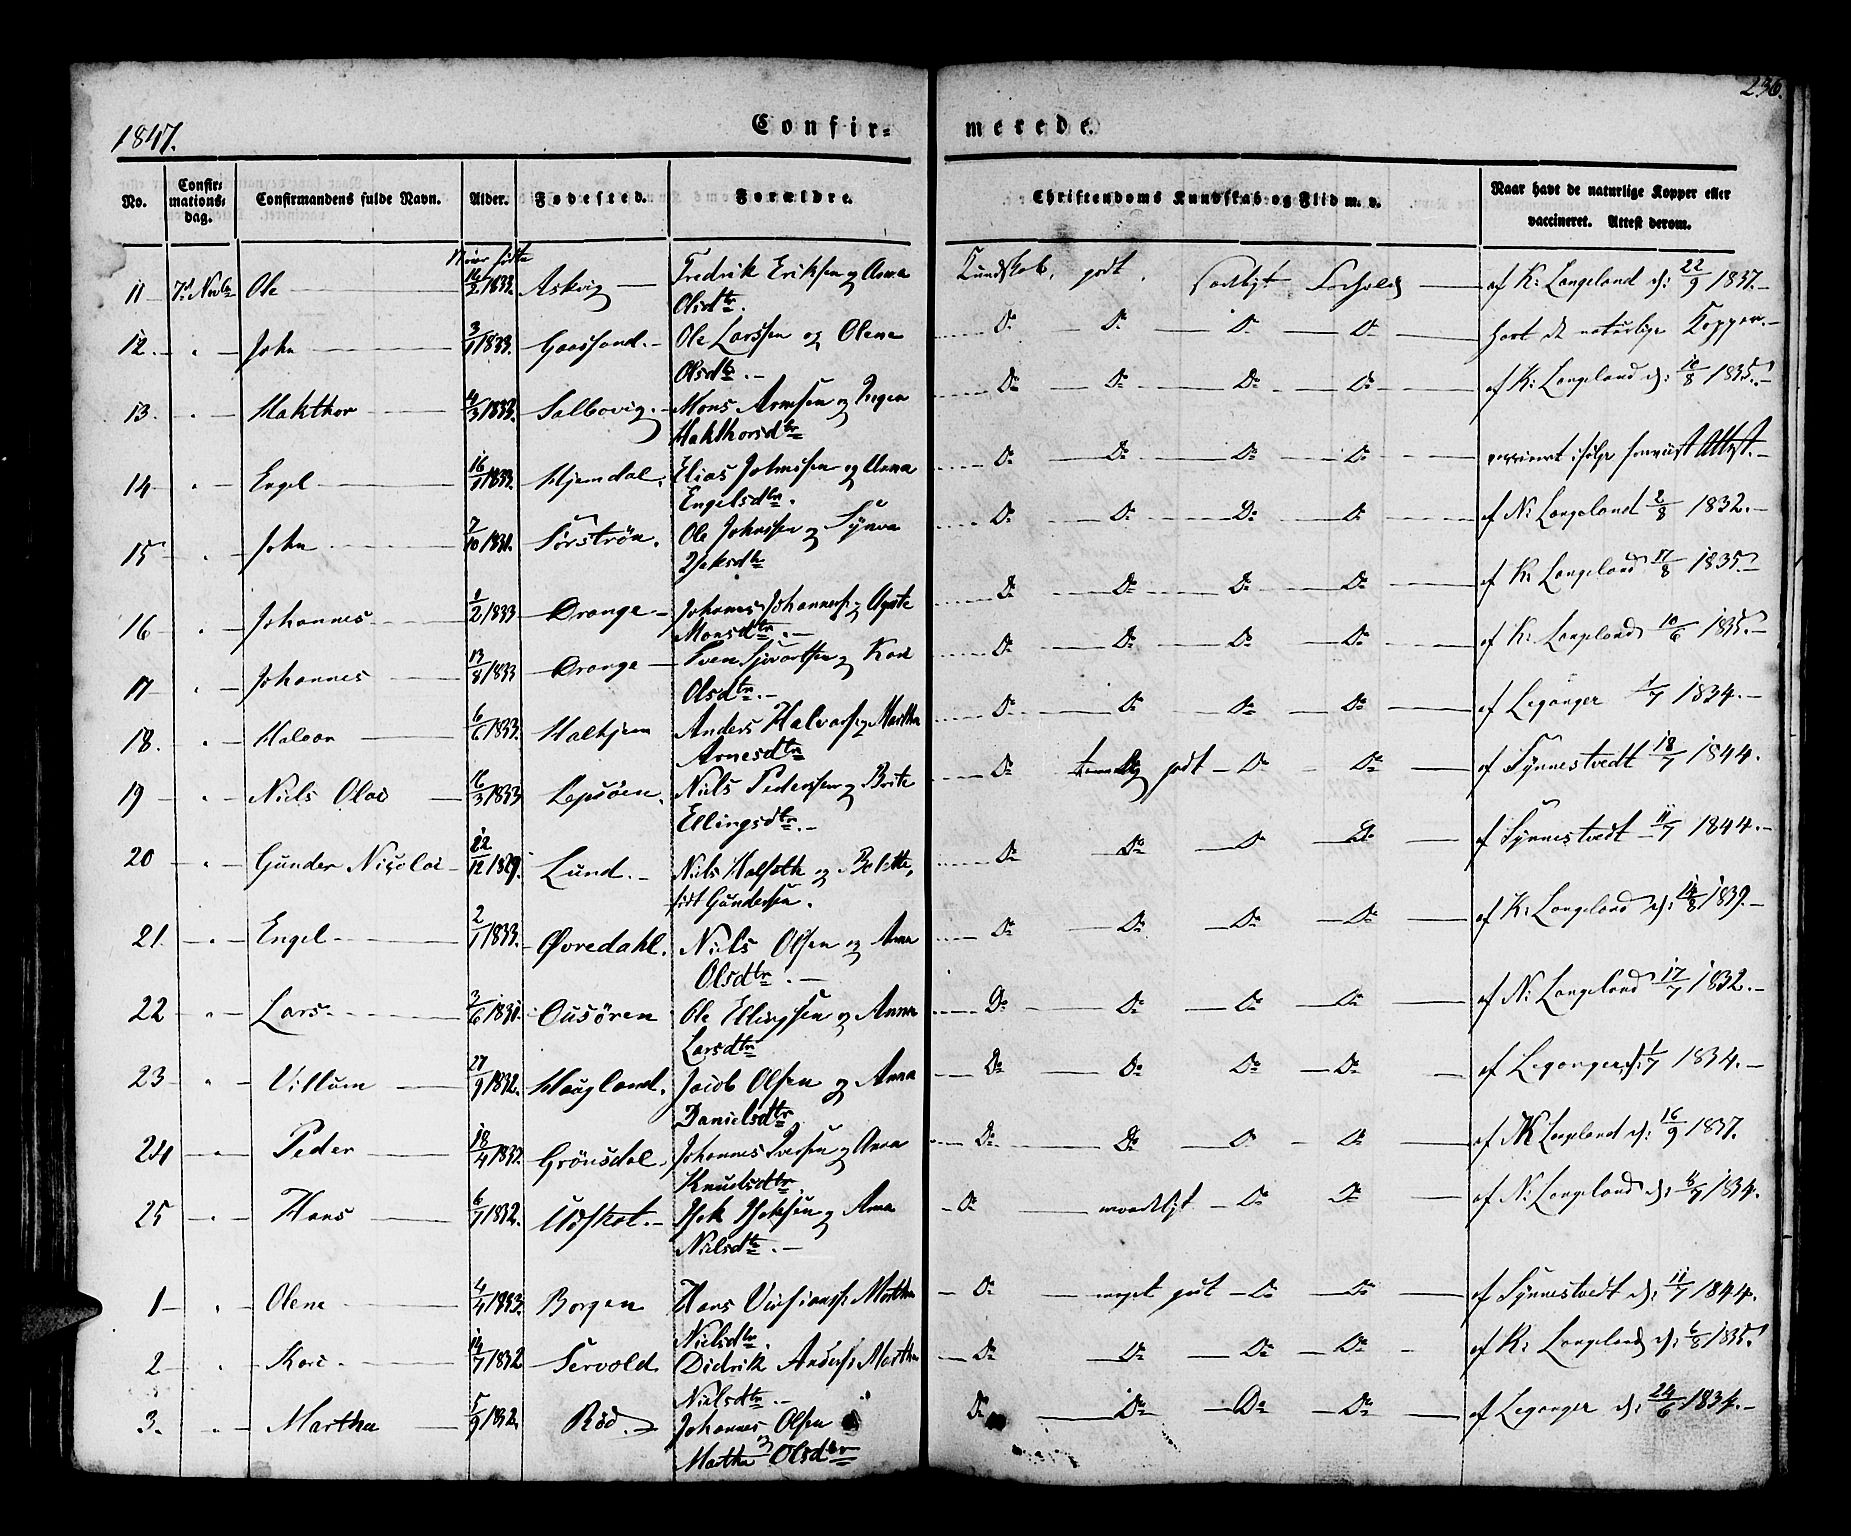 236.
1847.
Confir-
merede.
No.
Confir-
mations-
dag.
Confirmandens fulde Navn.
Alder.
Fødested.
Forældre.
Christendoms Kundskab og Flid m. v.
Naar havt de naturlige Kopper eller
vaccineret. Attest derom.
11 Ole 14/2 1833. Askvig Fredrik Eriksen og Anna Kundskab, godt. af K: Langeland d: 22/9 1837.
Olsdtr.
12. " John 3/1 1833. Gaassand. Ole Larssen og Olene Do Do Do Do havt de naturlige Kopper.
Olsdtr.
13. " Hakthor 4/3 1833. Salbovig. Mons Arnesen og Ingen Do Do Do Do af K: Langeland d: 10/8 1835.
Hakthorsdtr
14 " Engel 16/1 1833. Hjemdal. Elias Johnssen og Anna Do Do Do Do Attest.
Engelsdtr.
15 " John 7/10 1831. Sørstrøn. Ole Johnssen og Synva Do Do Do Do af N: Langeland 2/8 1832.
16 " Johannes 1/2 1833 Drange Johannes Johanness: og Do Do Do Do af K: Langeland 17/8 1835.
Monsdtr.
17 " Johannes 13/8 1833 Drange Sven og Kari Do Do Do Do af K: Langeland 10/6 1835.
Olsdtr.
18. " Halvor 6/6 1833. Halhjem Anders Halvors: og Martha Do Do Do Do af Leganger 1/7 1834.
Arnesdtr
19 " Niels Olai 16/3 1833 Lepsøen. Niels Pederssen og Brite Do godt Do Do af Synnestvedt 18/7 1844.
Ellingsdtr.
20 " Gunder Nicolai 22/12 1829. Lund. Niels og Do Do Do Do af Synnestvedt 11/7 1844.
født Gundersen.
21. " Engel 2/1 1833. Øvredahl. Niels Olsen og Anna Do Do Do Do af K: Langeland d: 14/8 1839.
Olsdtr.
22 " Lars 3/6 1831. Ousøren Ole Ellingsen og Anna Do Do Do Do af N: Langeland 17/7 1832.
Larsdtr
23 " Villum 27/9 1832. Haugland. Jacob Olsen og Anna Do Do Do Do af Leganger d: 1/7 1834.
Danielsdtr
24 " Peder 18/4 1832. Grønsdal. Johannes Iversen og Anna Do Do Do Do af Langeland d: 16/9 1837.
Knudsdtr.
25 " Hans 6/7 1832. Johannes og Anna Do maadeligt Do Do af N: Langeland d: 1834.
Nielsdtr.
1 " Olene 4/4 1833. Borgen Hans Martha Do meget godt Do Do af Synnestvedt d: 11/7 1844.
Nielsdtr.
2 " Kari 14/7 1832 Servold Didrik Anders: Martha Do Do Do Do af K: Langeland d: 6/8 1835.
Nielsdtr.
3. " Martha 5/9 1832. Rød. Johannes Olsen Do Do Do Do af Leganger d: 24/6 1834.
Martha Olsdtr